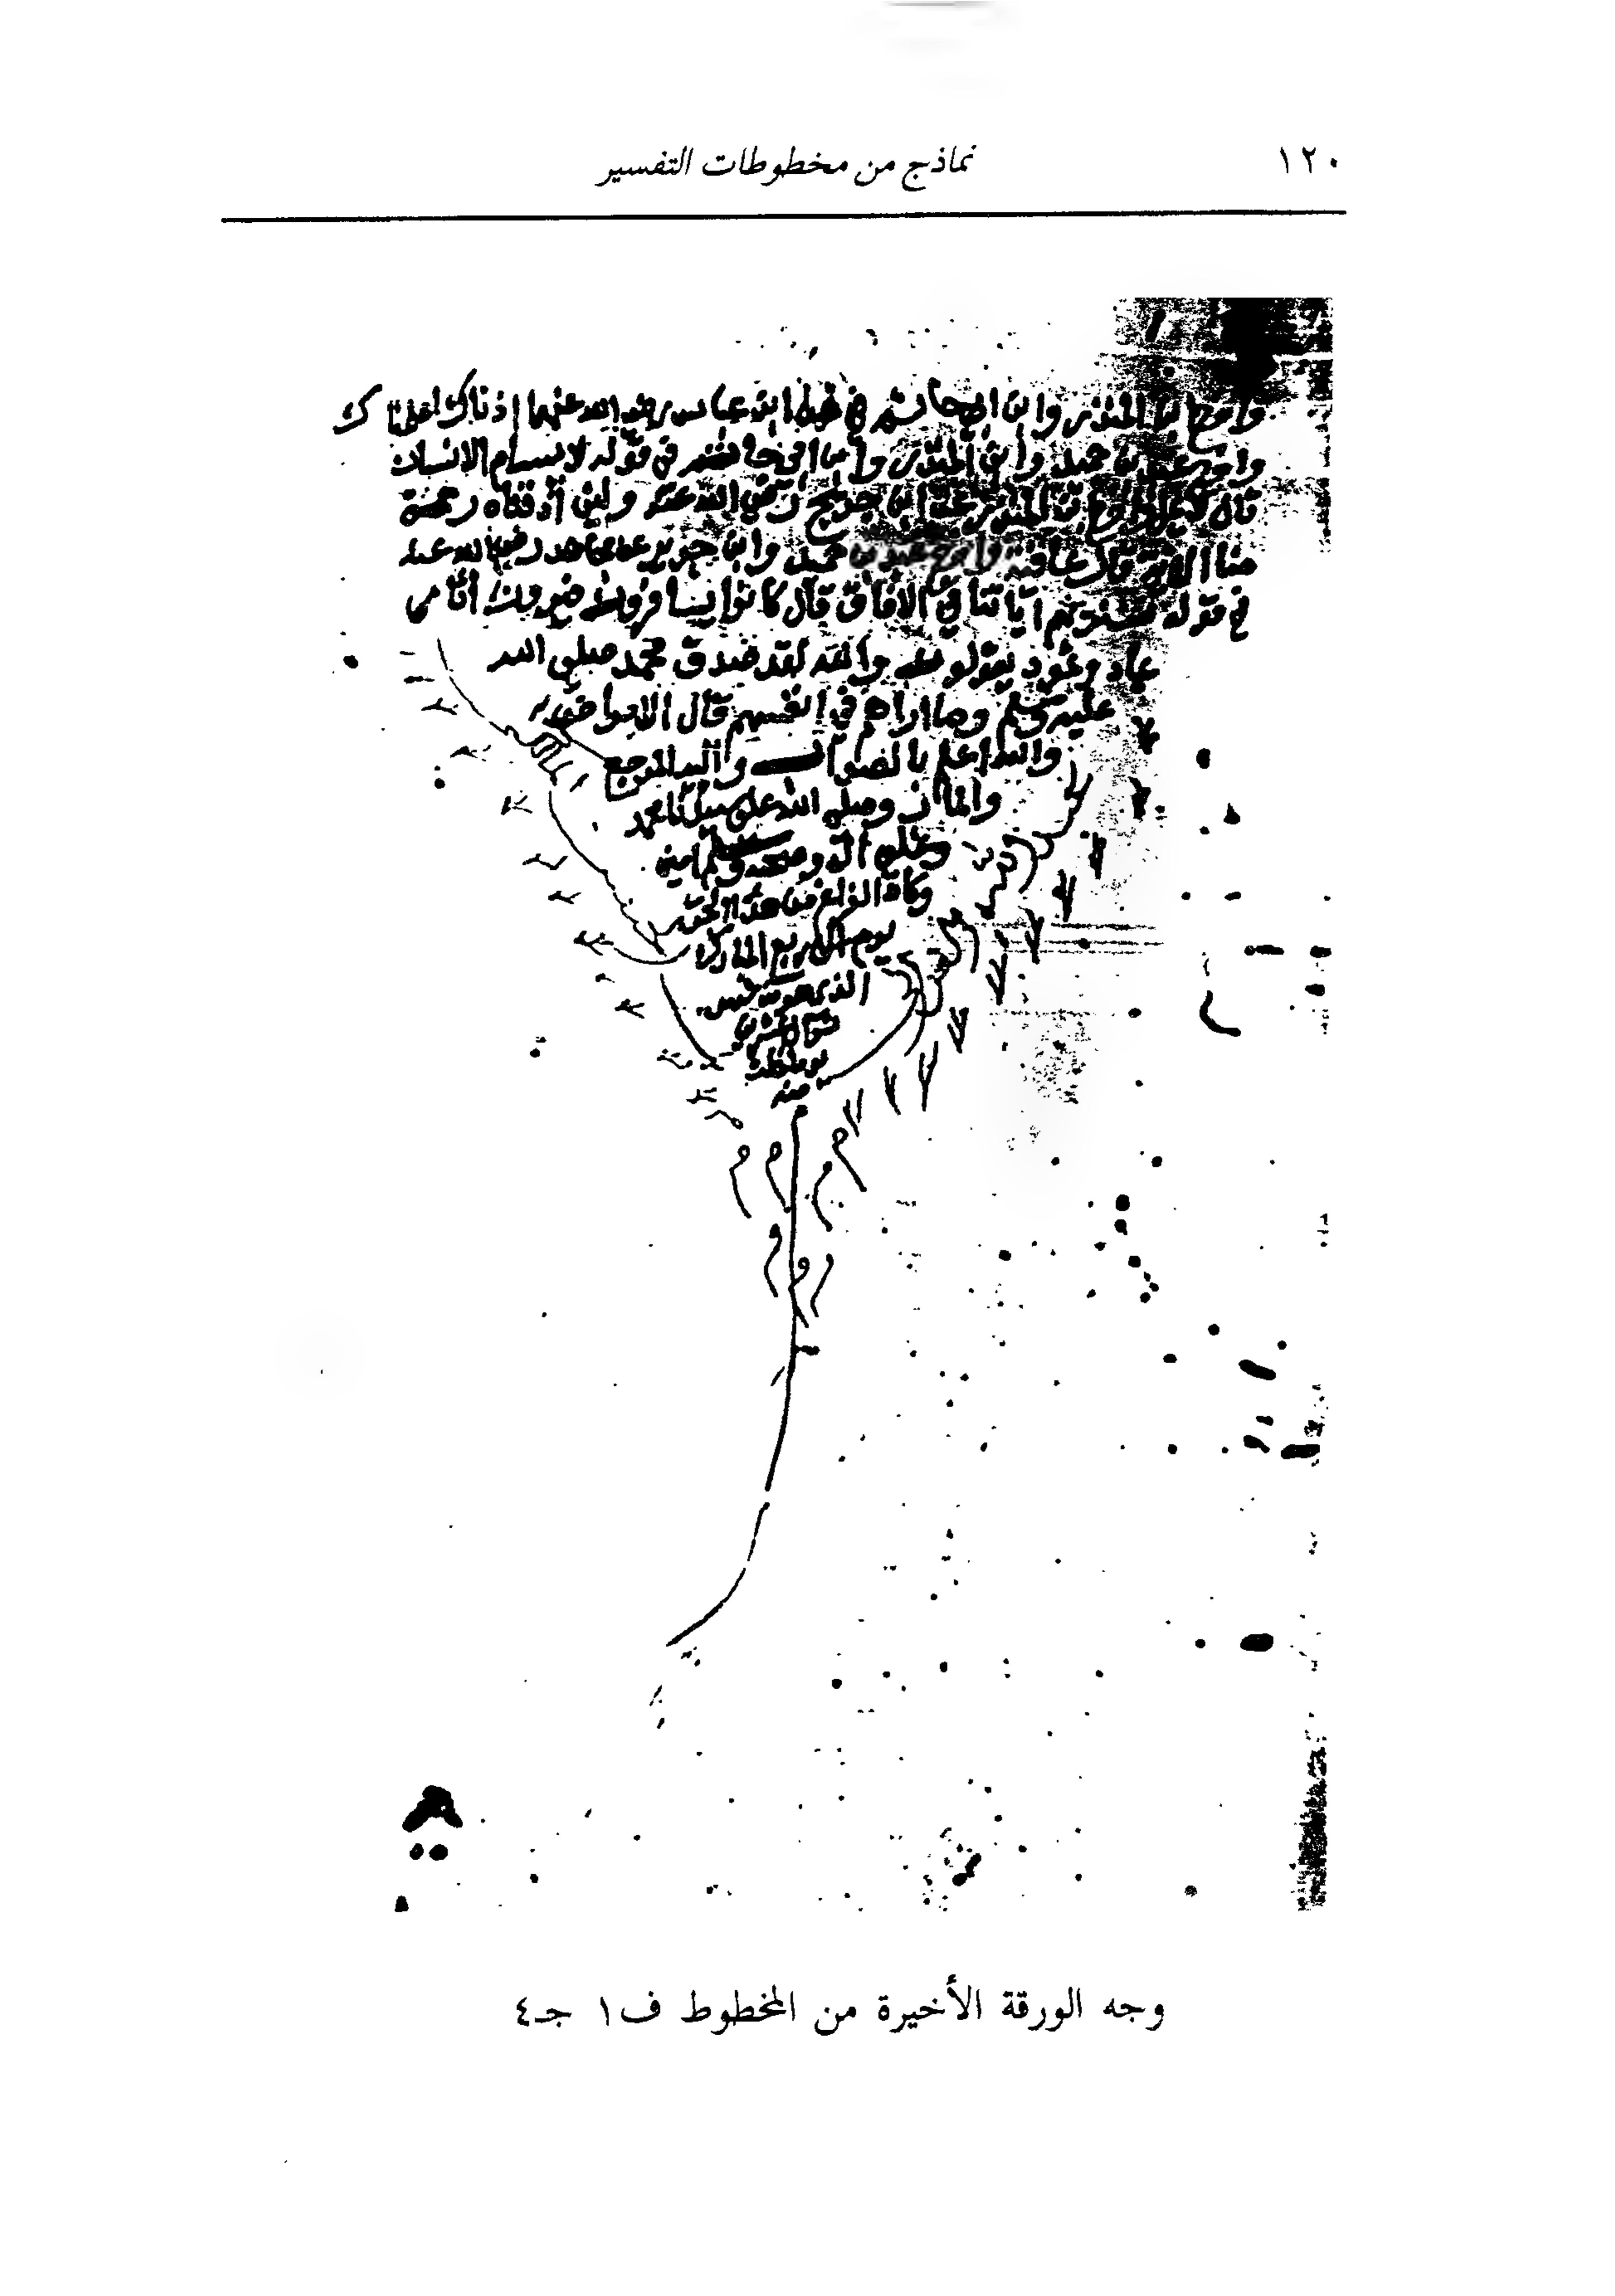 ١٢٠
نماذج من مخطوطات التفسير
واخرج ابن المنذر وابن ابي حاتم في ابن عباس رضي الله عنهما اذناك اعلمناك
واخرج عبد بن حميد وابن المنذر وابن ابي حاتم في قوله لا يسام الانسان
قال ابن المنذر عن ابن جريج رضي الله عنه ولئن اذقناه رحمة
منا الاية قال عافية واخرج عبد بن حميد وابن جرير عن مجاهد رضي الله عنه
في قوله سنريهم اياتنا في الافاق قال كانوا يسافرون فيرون اثار
عاد وثمود يقولون والله لقد صدق محمد صلى الله
عليه وسلم وما اراهم في انفسهم قال الامراض
والله اعلم بالصواب واليه المرجع
والماب وصلى الله على سيدنا محمد
وعلى اله وصحبه وسلم امين
وكان الفراغ من هذا الجزء
يوم المبارك
الذي هو
منه
م م م م
وجه الورقة الأخيرة من المخطوط ف١ جـ٤